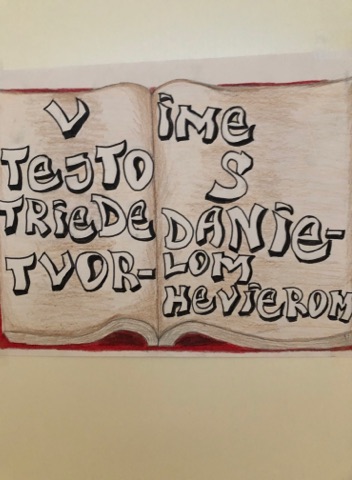 V
TEJTO
TRiEDE
TVOR-
iME
S
DANiE-
LOM
HEViEROM